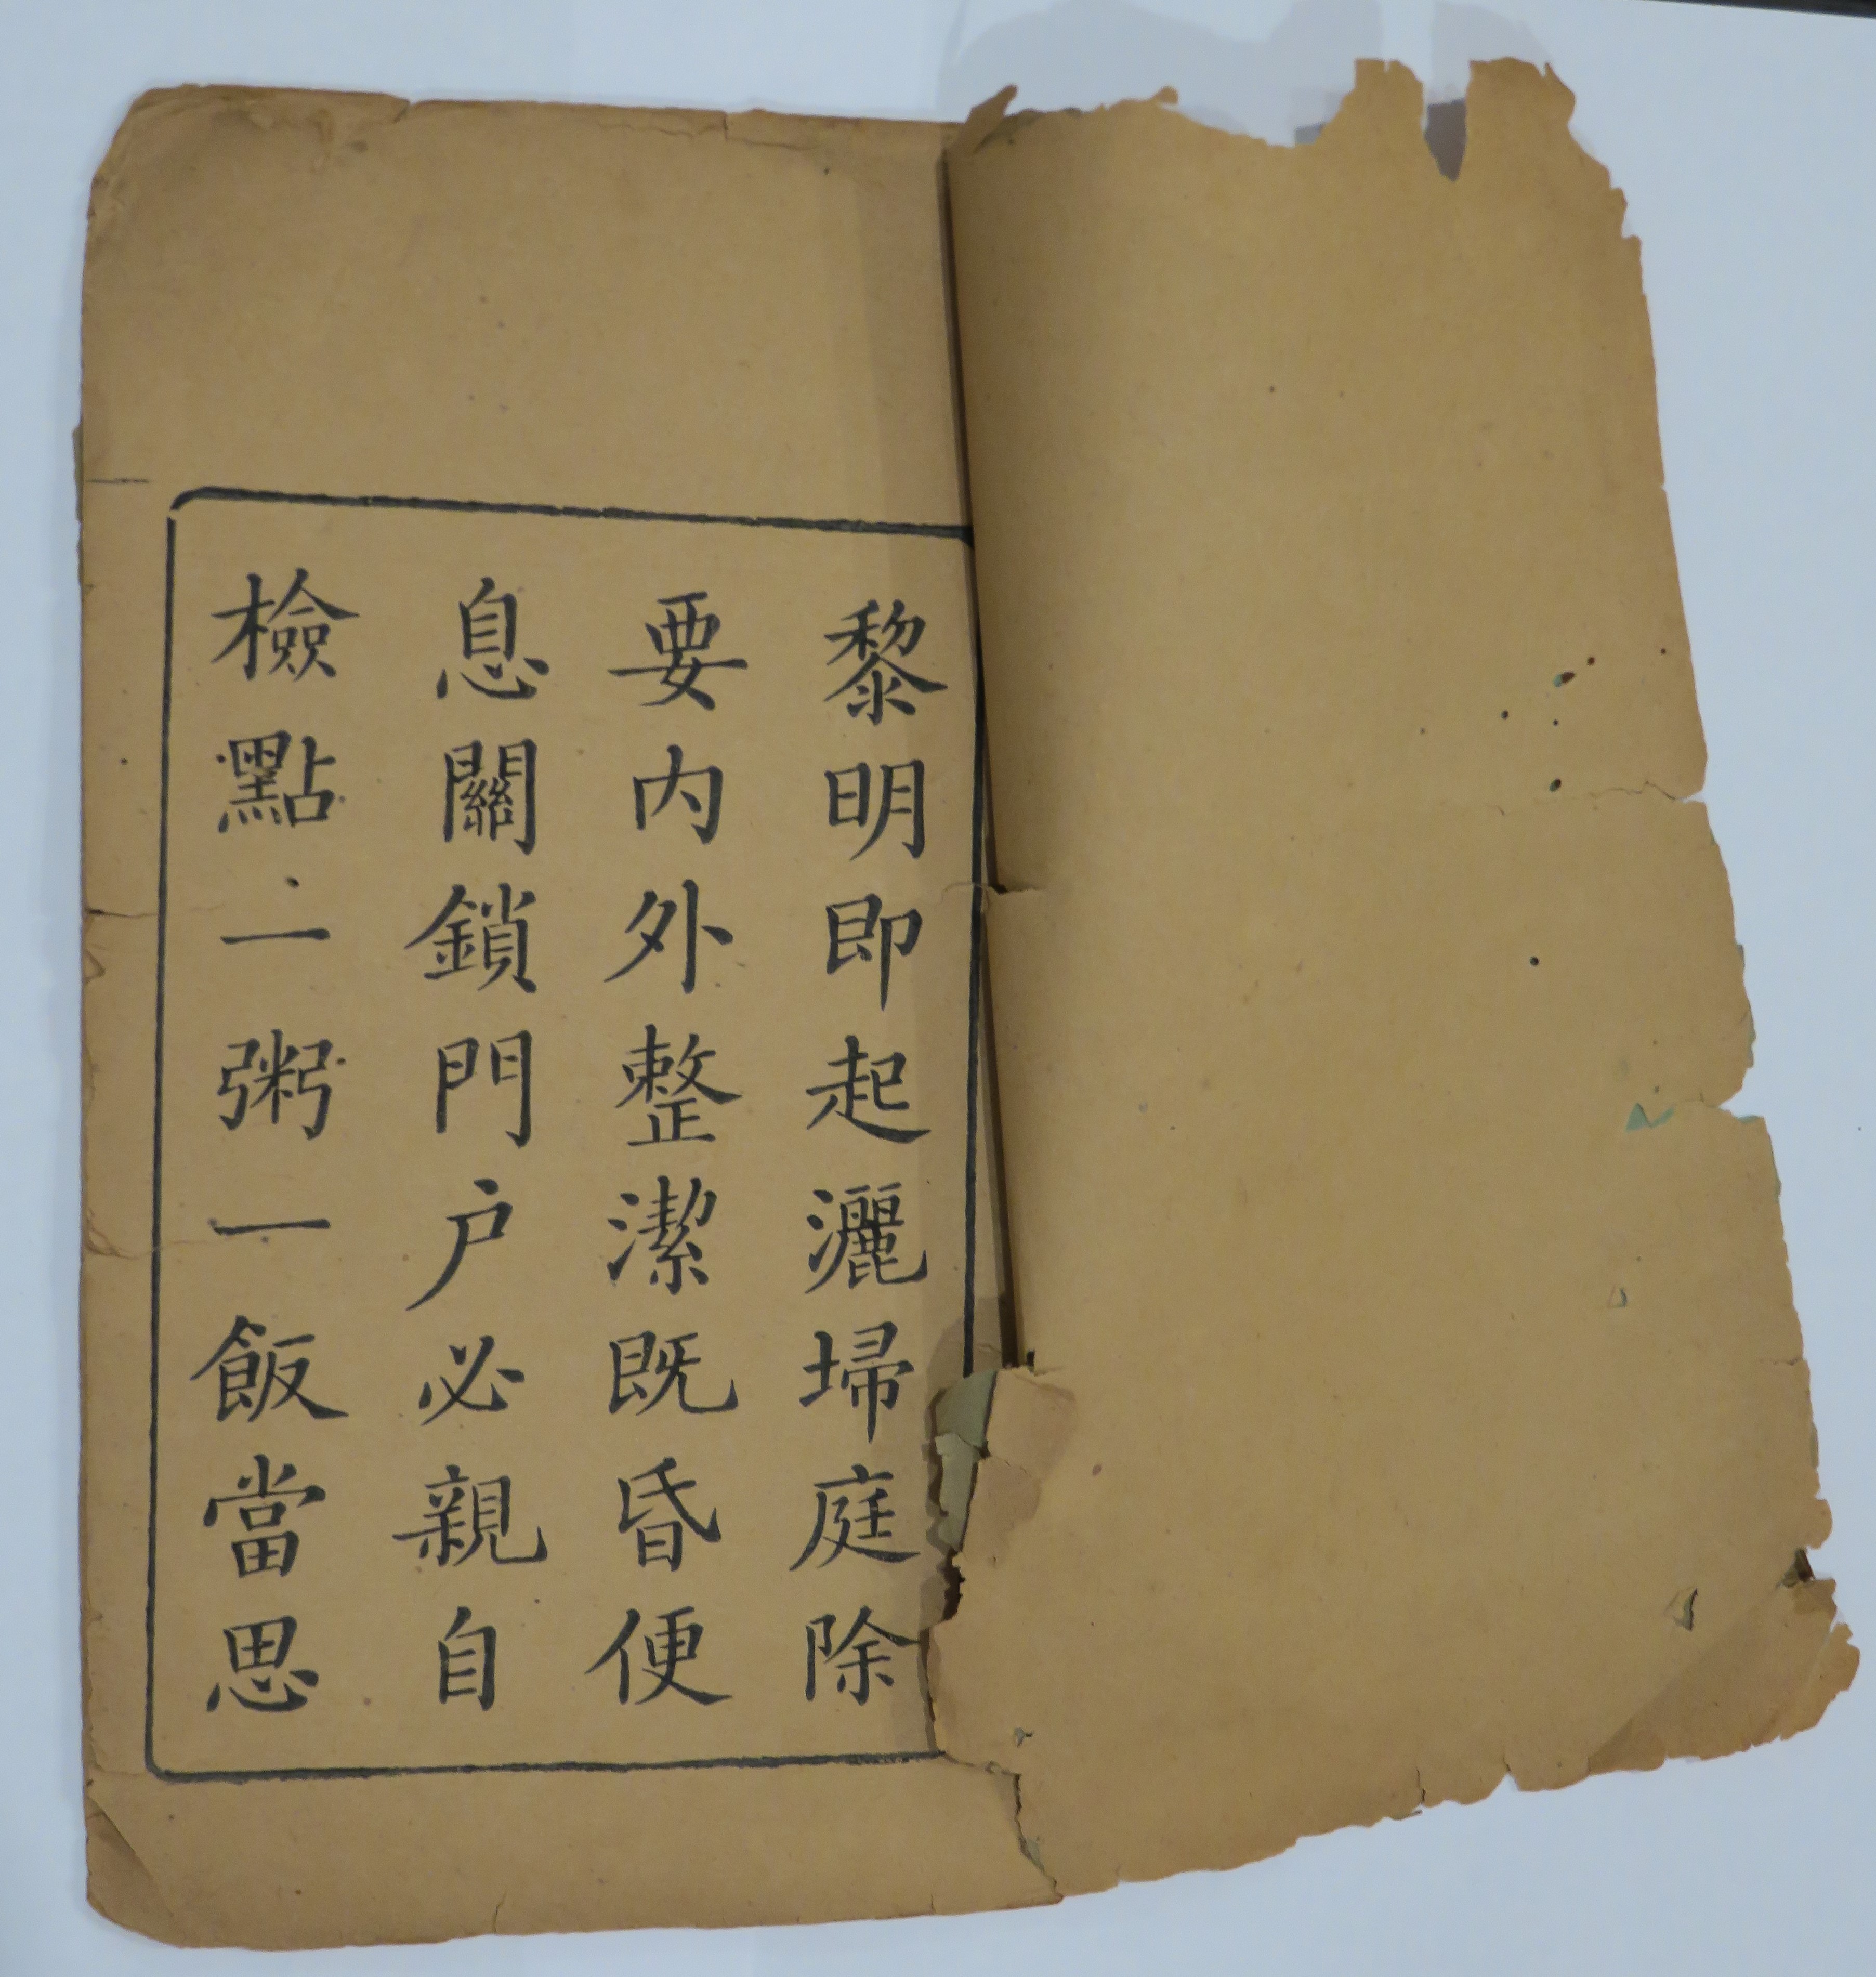 黎明即起灑埽庭除
要内外整潔既昏便
息關鎖門户必親自
檢點一粥一飯當思